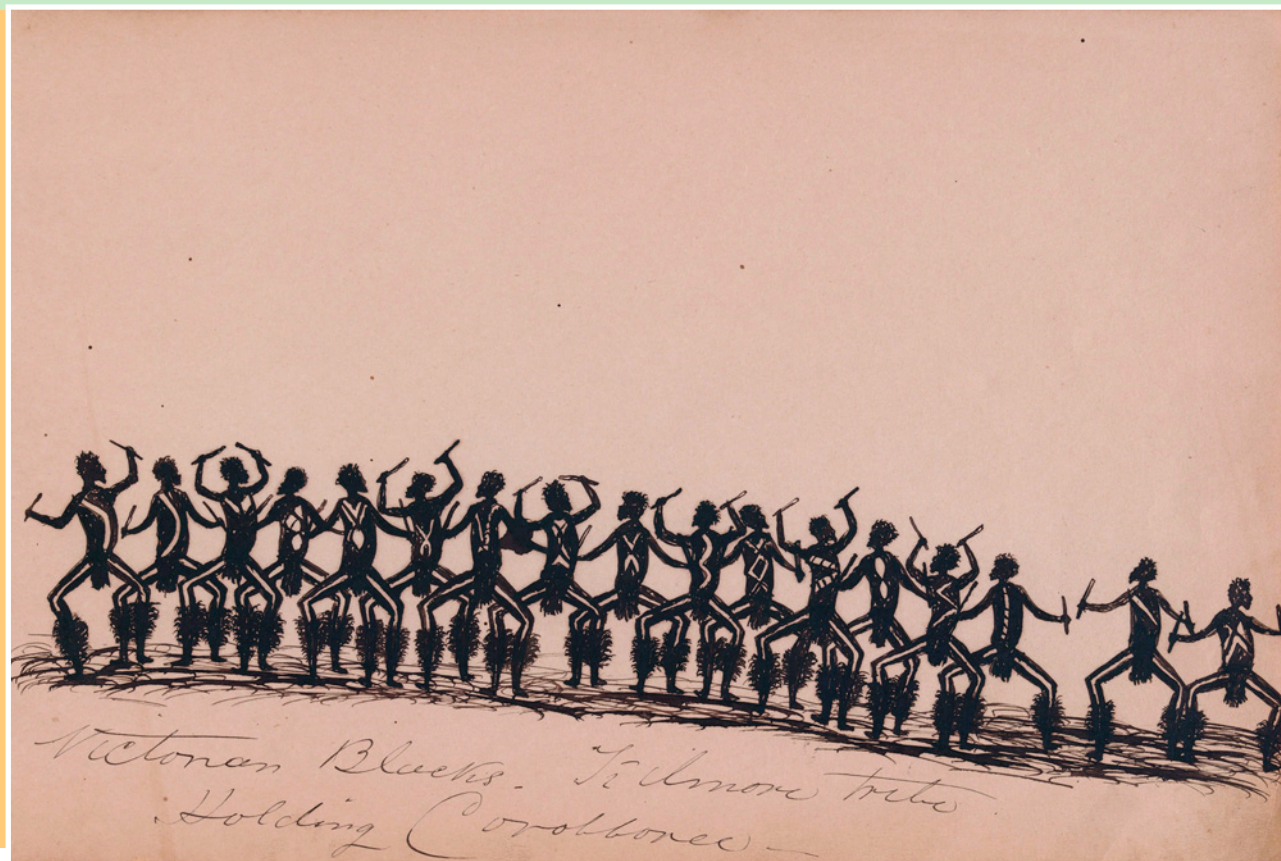 Victorian Blacks. Kilmore tribe
Holding Corobboree —